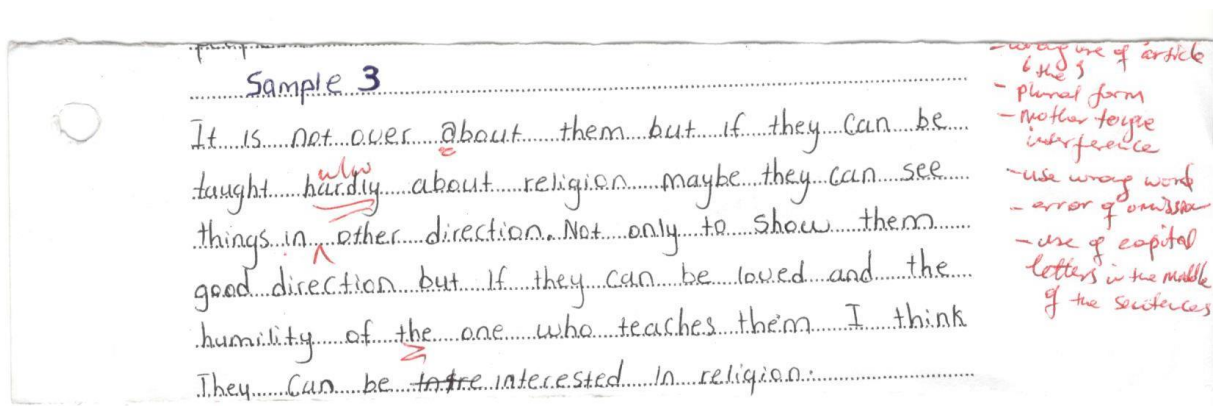 Sample 3
It is not over about them but if they can be
taught hardly about religion maybe they can see
things in other direction. Not only to show them
good direction but if they can be loved and the
humility of the one who teaches them I think
They Can be intre interested in religion.
- wrong use of article
the
- plural form
- mother tongue
interference
- use wrong word
- error of omission
- use of capital
letters in the middle
of the sentences